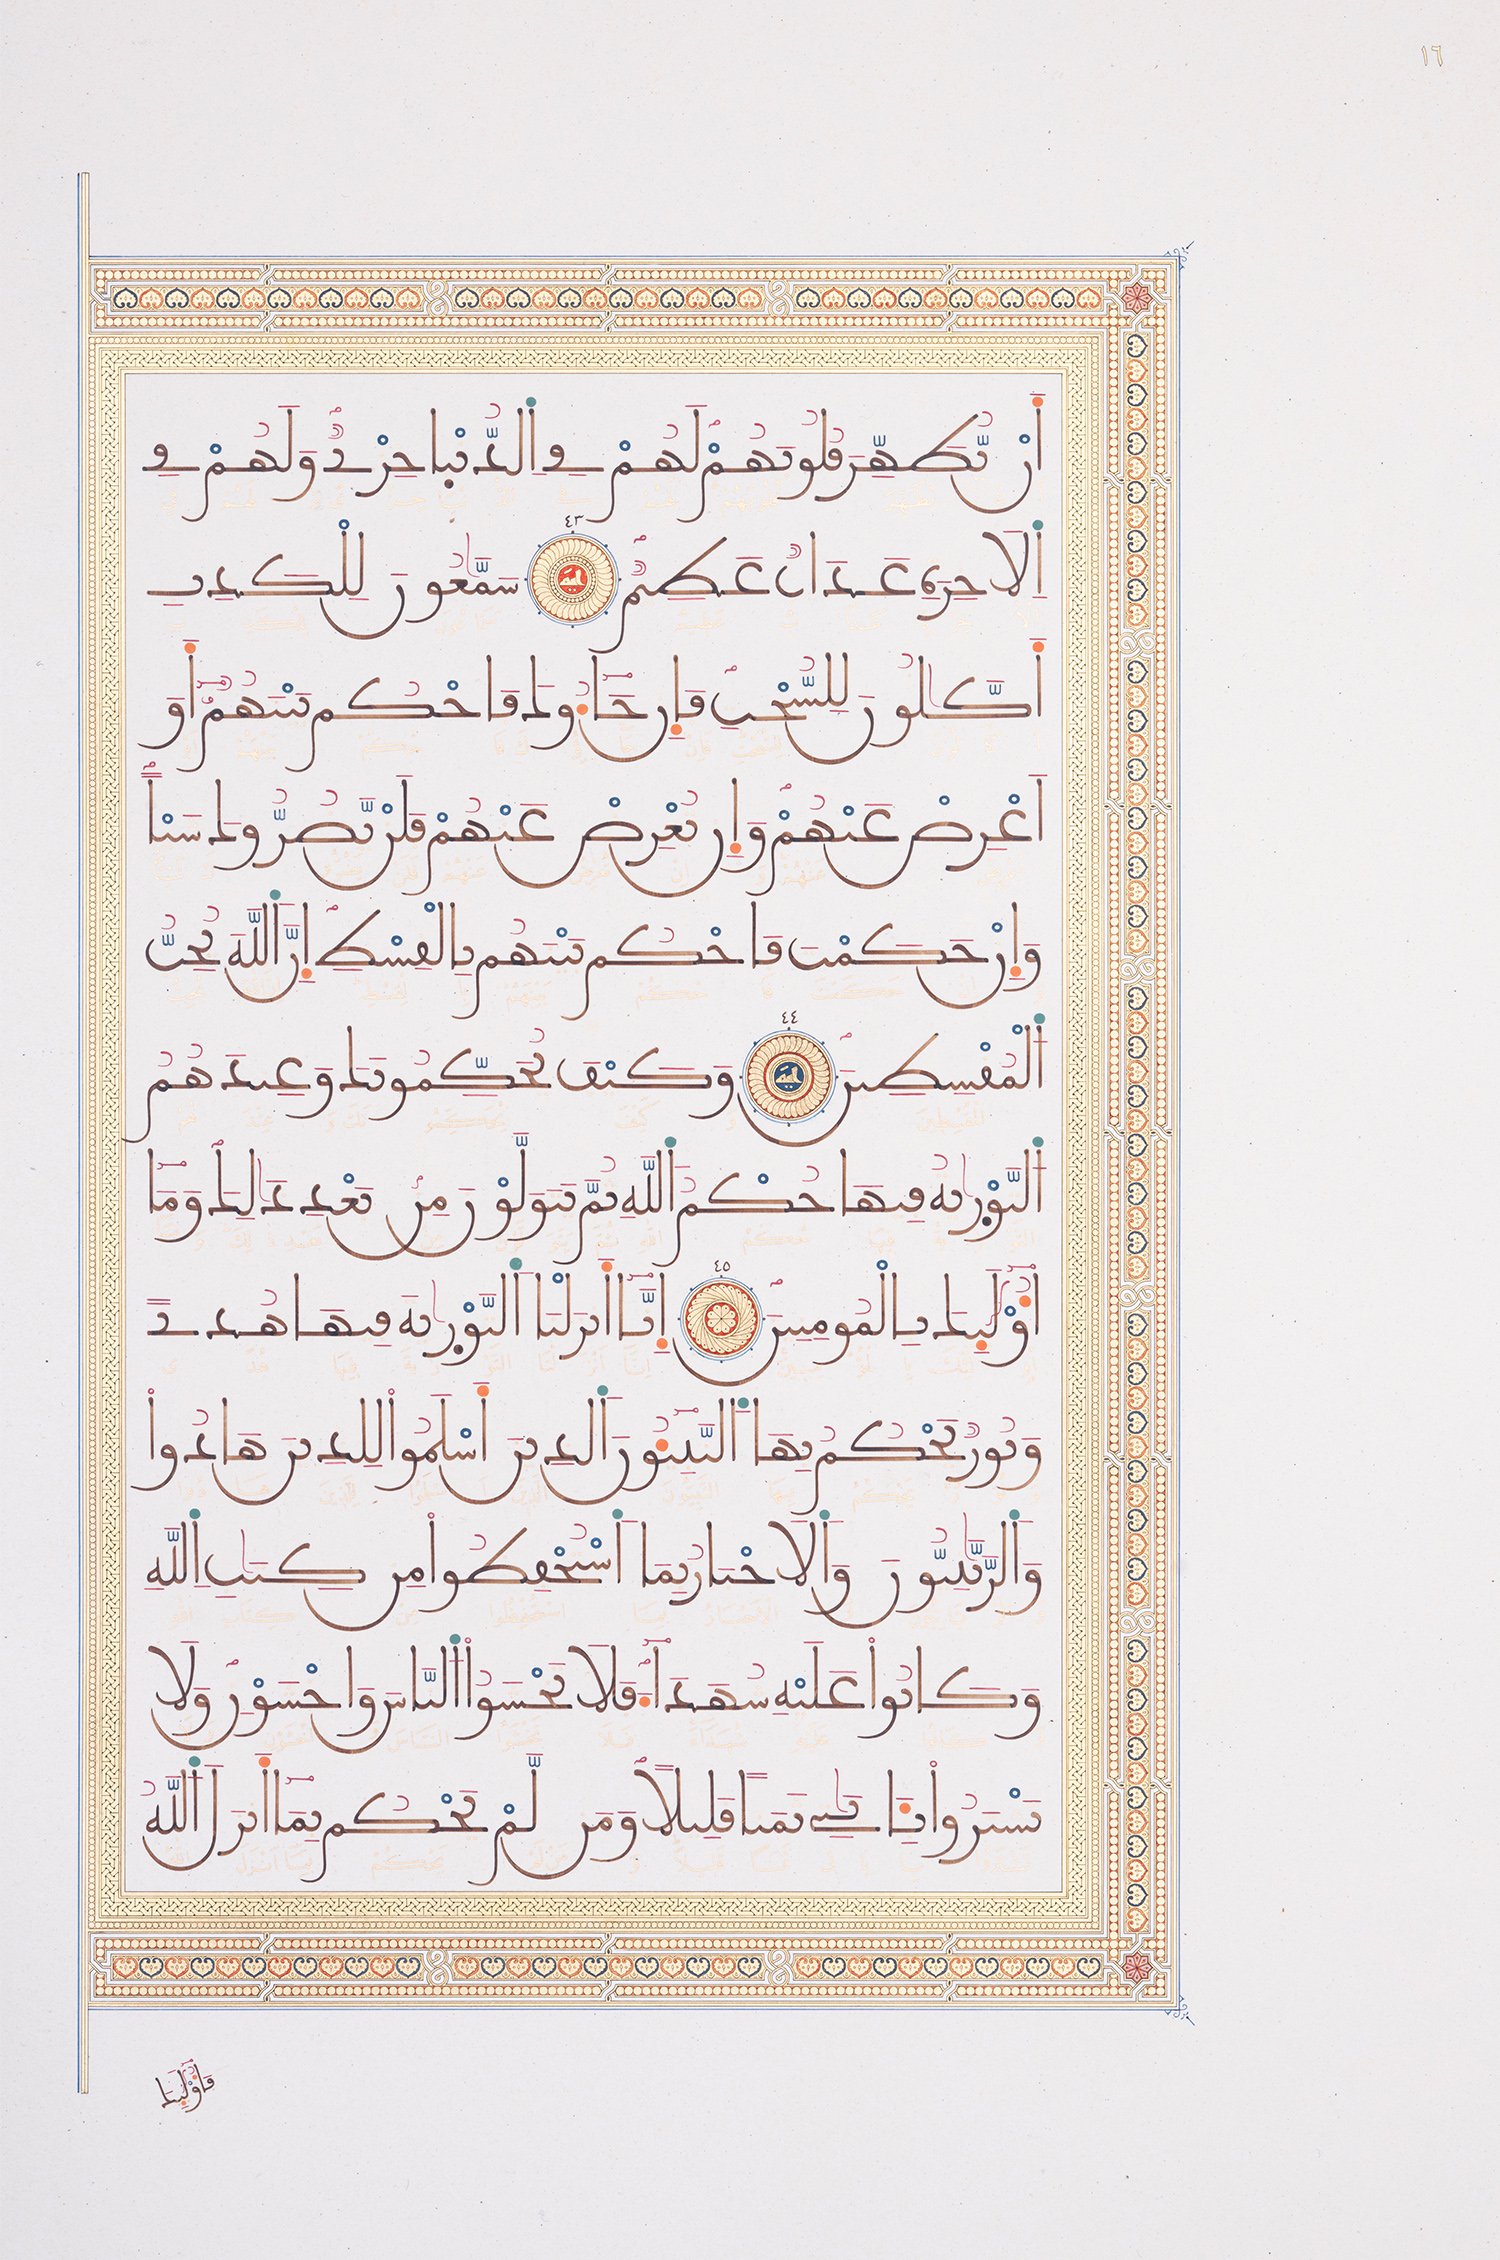 ١٦
أَنْ يُّطَهِّرَ قُلُوبَهُمْ لَهُمْ فِي اِلدُّنْيَا خِزْيٌ وَلَهُمْ فِي
اِلَاخِرَةِ عَذَابٌ عَظِيمٌ ٤٣ سَمَّٰعُونَ لِلْكَذِبِ
أَكَّٰلُونَ لِلسُّحْتِ فَإِن جَآءُوكَ فَاحْكُم بَيْنَهُمُۥٓ أَوَ
اَعْرِضْ عَنْهُمْ وَإِن تُعْرِضْ عَنْهُمْ فَلَنْ يَّضُرُّوكَ شَيْـٔاً
وَإِنْ حَكَمْتَ فَاحْكُم بَيْنَهُم بِالْقِسْطِ إِنَّ اَللَّهَ يُحِبُّ
اُلْمُقْسِطِينَ ٤٤ وَكَيْفَ يُحَكِّمُونَكَ وَعِندَهُمُ
اُلتَّوْرَىٰةُ فِيهَا حُكْمُ اُللَّهِ ثُمَّ يَتَوَلَّوْنَ مِنۢ بَعْدِ ذَٰلِكَ وَمَآ
أُوْلَٰٓئِكَ بِالْمُومِنِينَ ٤٥ إِنَّآ أَنزَلْنَا اَلتَّوْرَىٰةَ فِيهَا هُدىً
وَنُورٌ يَحْكُمُ بِهَا اَلنَّبِيٓـُٔونَ اَلذِينَ أَسْلَمُواْ لِلذِينَ هَادُواْ
وَالرَّبَّٰنِيُّونَ وَالَاحْبَارُ بِمَا اَسْتُحْفِظُواْ مِن كِتَٰبِ اِللَّهِ
وَكَانُواْ عَلَيْهِ شُهَدَآءَ فَلَا تَخْشَوُاْ اُلنَّاسَ وَاخْشَوْنِ وَلَا
تَشْتَرُواْ بِـَٔايَٰتِي ثَمَناً قَلِيلًا وَمَن لَّمْ يَحْكُم بِمَآ أَنزَلَ اَللَّهُ
فَأُوْلَٰٓئِكَ